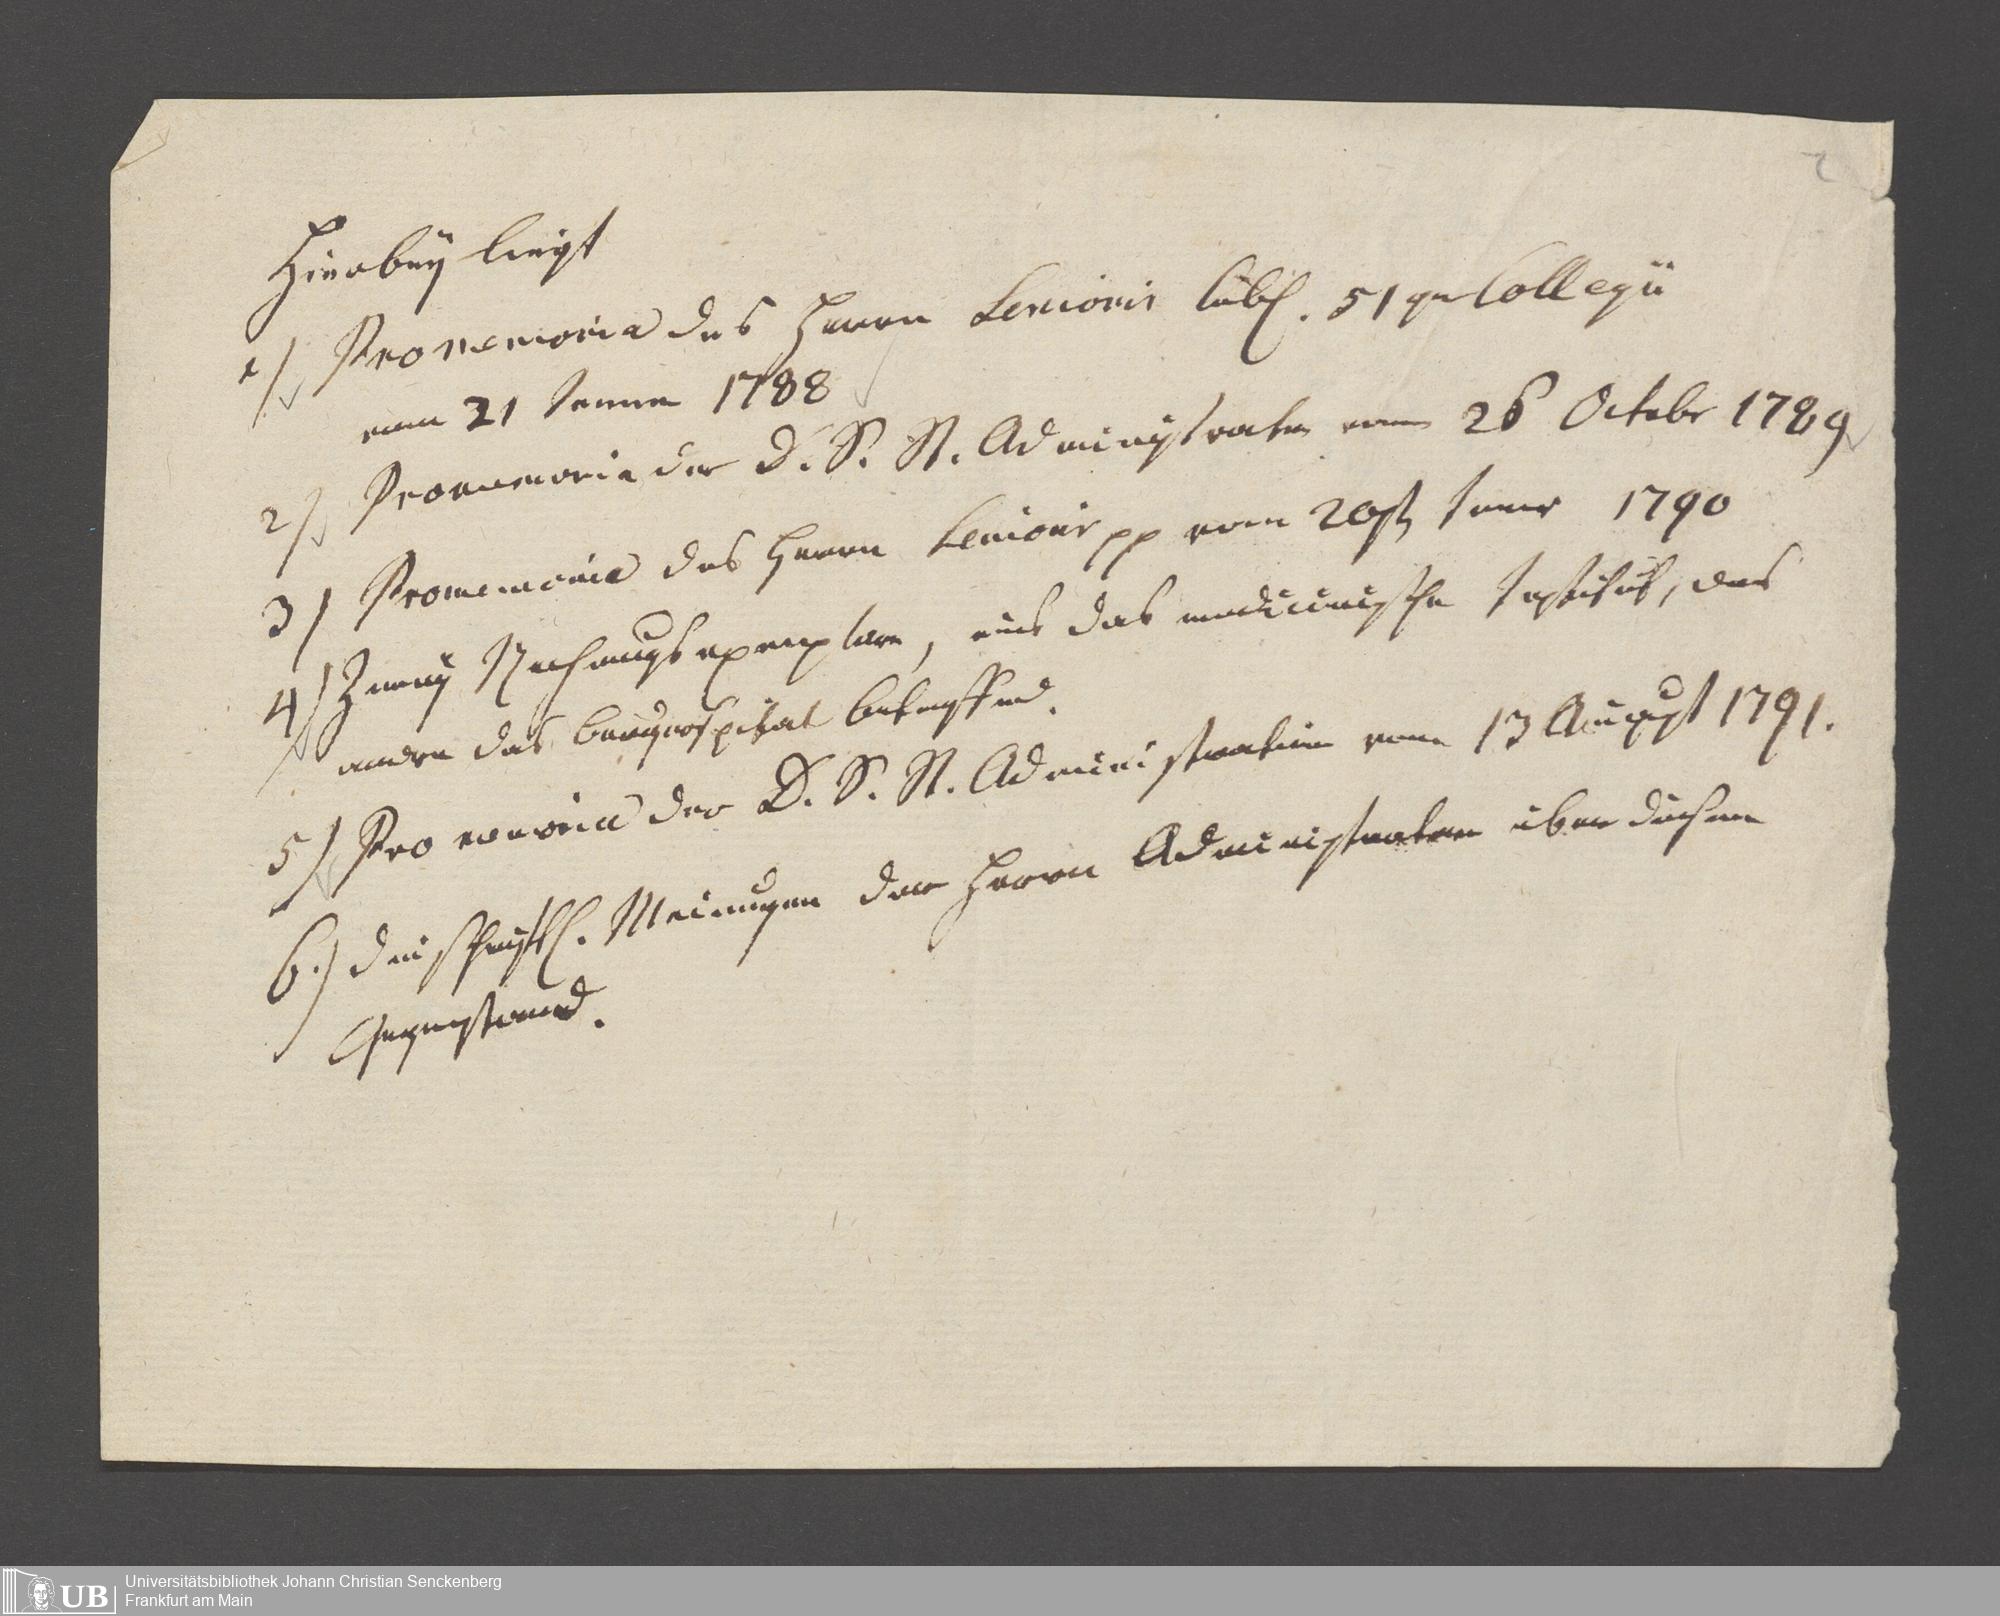 2
Hierbey liegt
1) Promemoria des Herrn Senioris löbl. 51ger Collegii
vom 21 Jenner 1788
2) Promemoria der D. S. St. Administration vom 26 Octobr 1789
3) Promemoria des Herrn Senioris pp vom 20st Jenner 1790
4) Zwey Rechnungsexemplare, eins das medicinische Institut, das
andre das Bürgerhospital betreffend.
5) Pro memoria der D. S. St. Administration vom 13 August 1791.
6.) die schriftl. Meinungen der Herrn Administratoren über diesen
Gegenstand.
UB
Universitätsbibliothek Johann Christian Senckenberg
Frankfurt am Main